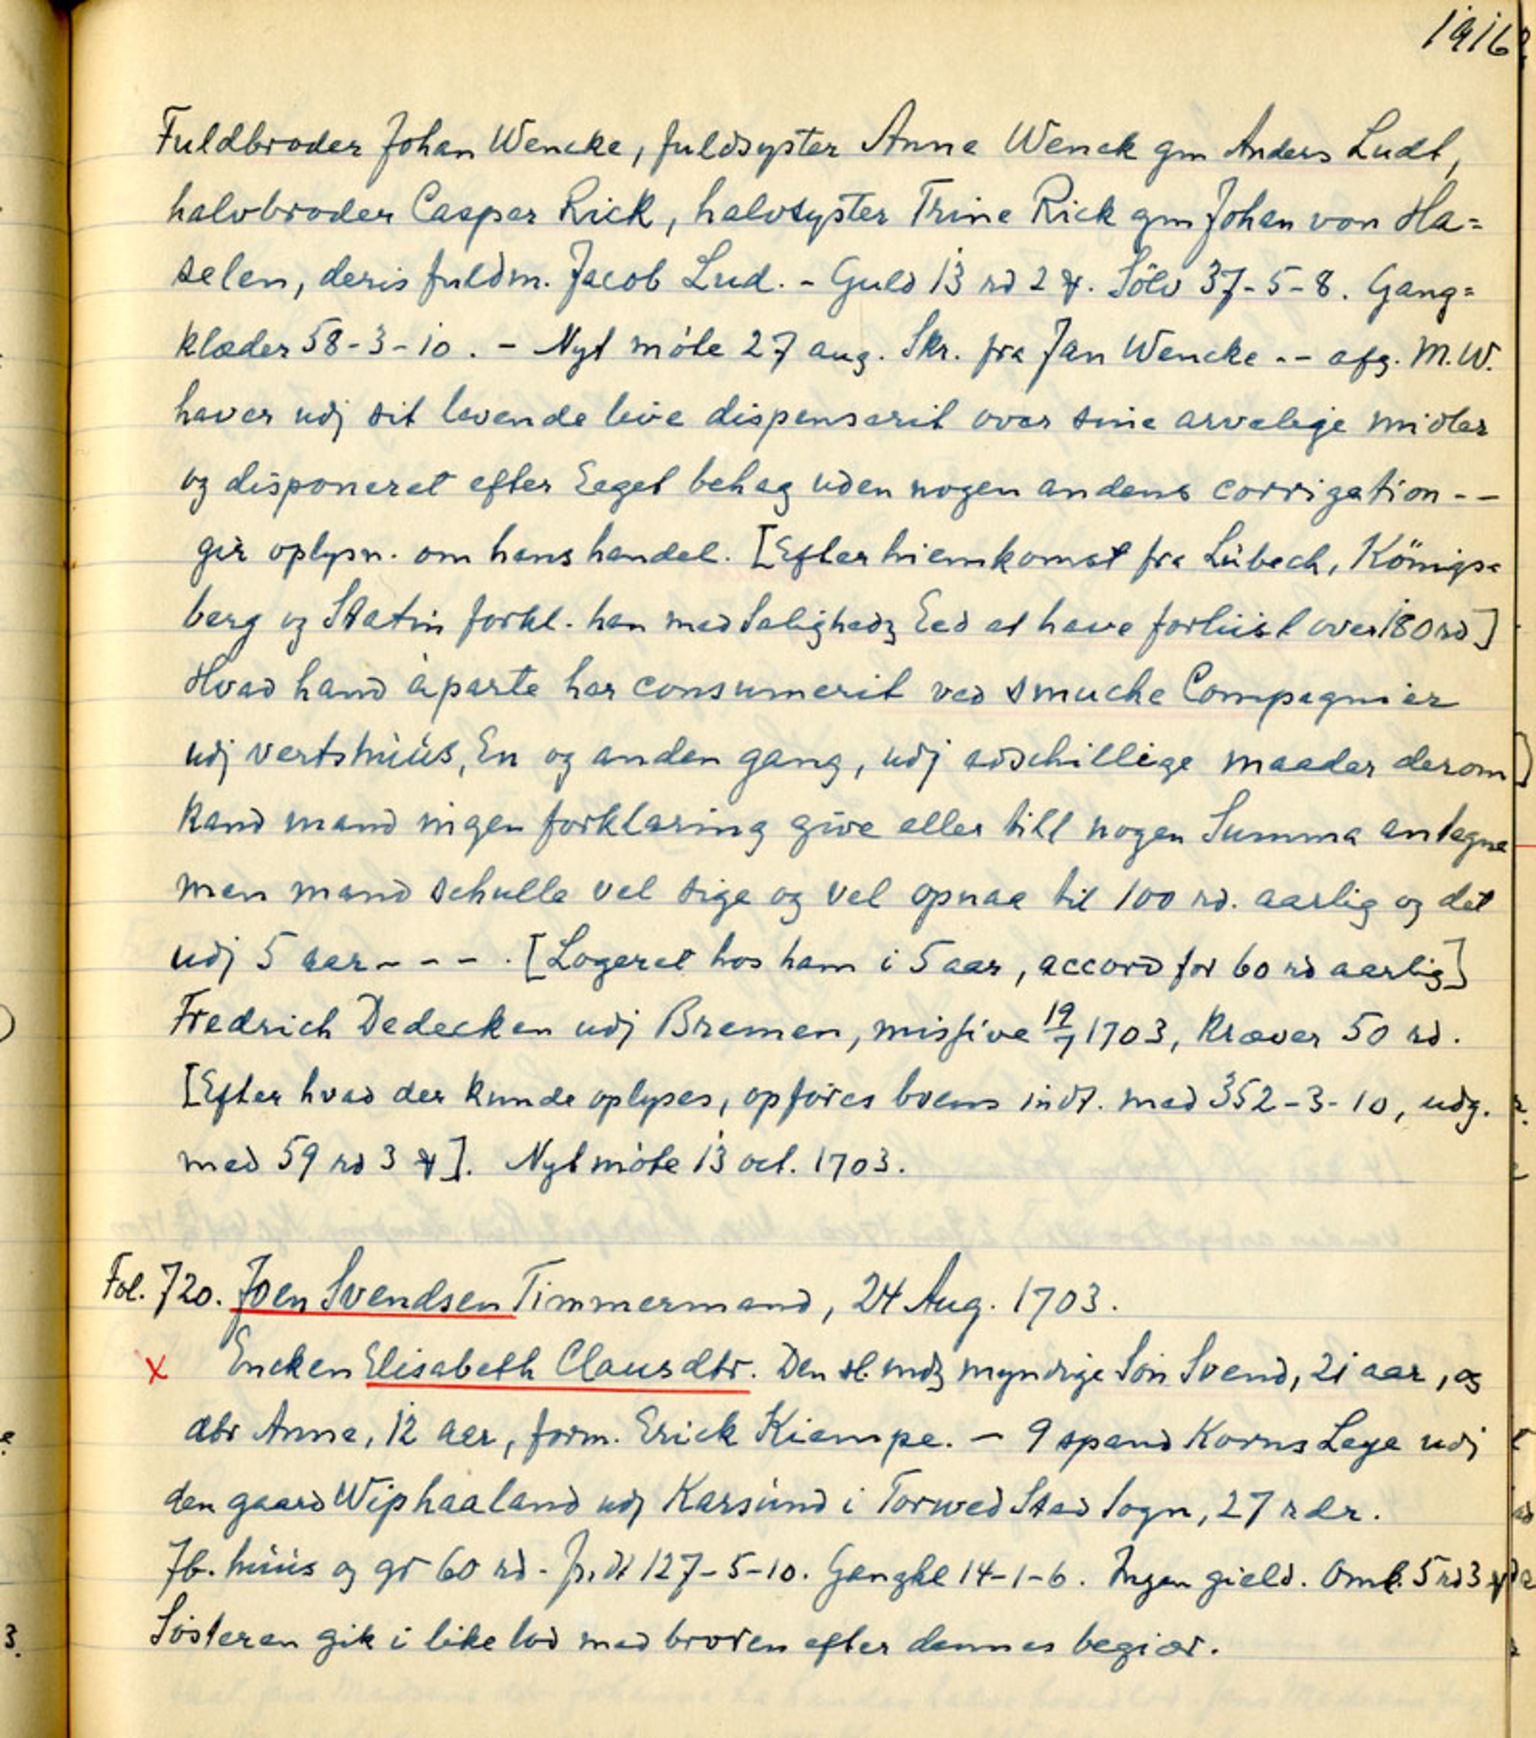 1916
Fuldbroder Johan Wencke, fuldsyster Anne Wenck gm Anders Ludt,
halvbroder Casper Rick, halvsyster Trine Rick gm Johan von Ha=
selen, deris fuldm. Jacob Lud. - Guld 13 rd 2 ꝟ. Sölv 37-5-8. Gang=
klæder 58-3-10. - Nyt möte 27 aug. Skr. fra Jan Wencke -- afg. M.W.
haver udj sit levende live dispenserit over sine arvelige midler
og disponeret efter Eeget behag uden nogen andens corrigation --
gir oplysn. om hans handel. [Efter hiemkomst fra Lübeck, Königs=
berg og Statin forkl. han med Salighedz Eed at have forliist over 180 rd]
Hvad hand à parte har consumerit ved smucke Compagnier
udj vertshùùs, En og anden gang, udj adschillige maader derom
kand mand ingen forklaring give eller till nogen Summa antegne
men mand schulle vel sige og vel opnaa til 100 rd. aarlig og det
udj 5 aar - - - . [Logeret hos ham i 5 aar, accord for 60 rd aarlig]
Fredrich Dedecken udj Bremen, missive 19/7 1703, kræver 50 rd.
[Efter hvad der kunde oplyses, opföres boens indt. med 352-3-10, udg.
med 59 rd 3 ꝟ]. Nyt möte 13 oct. 1703.
Fol. 720. Joen Svendsen Timmermand, 24 Aug. 1703.
x Encken Elisabeth Clausdtr. Den sl. mdz myndige Sön Svend, 21 aar, og
dtr Anne, 12 aar, form. Erick Kiempe. - 9 spand Korns Leye udj
den gaard Wiphaaland udj Karsùnd i Torwed Stad Sogn, 27 rdr.
Jb. hùùs og gr 60 rd - 127-5-10. Gangkl 14-1-6. Ingen gield. Omk. 5 rd 3 ꝟ
Sösteren gik i like lod med broren efter dennes begiær.